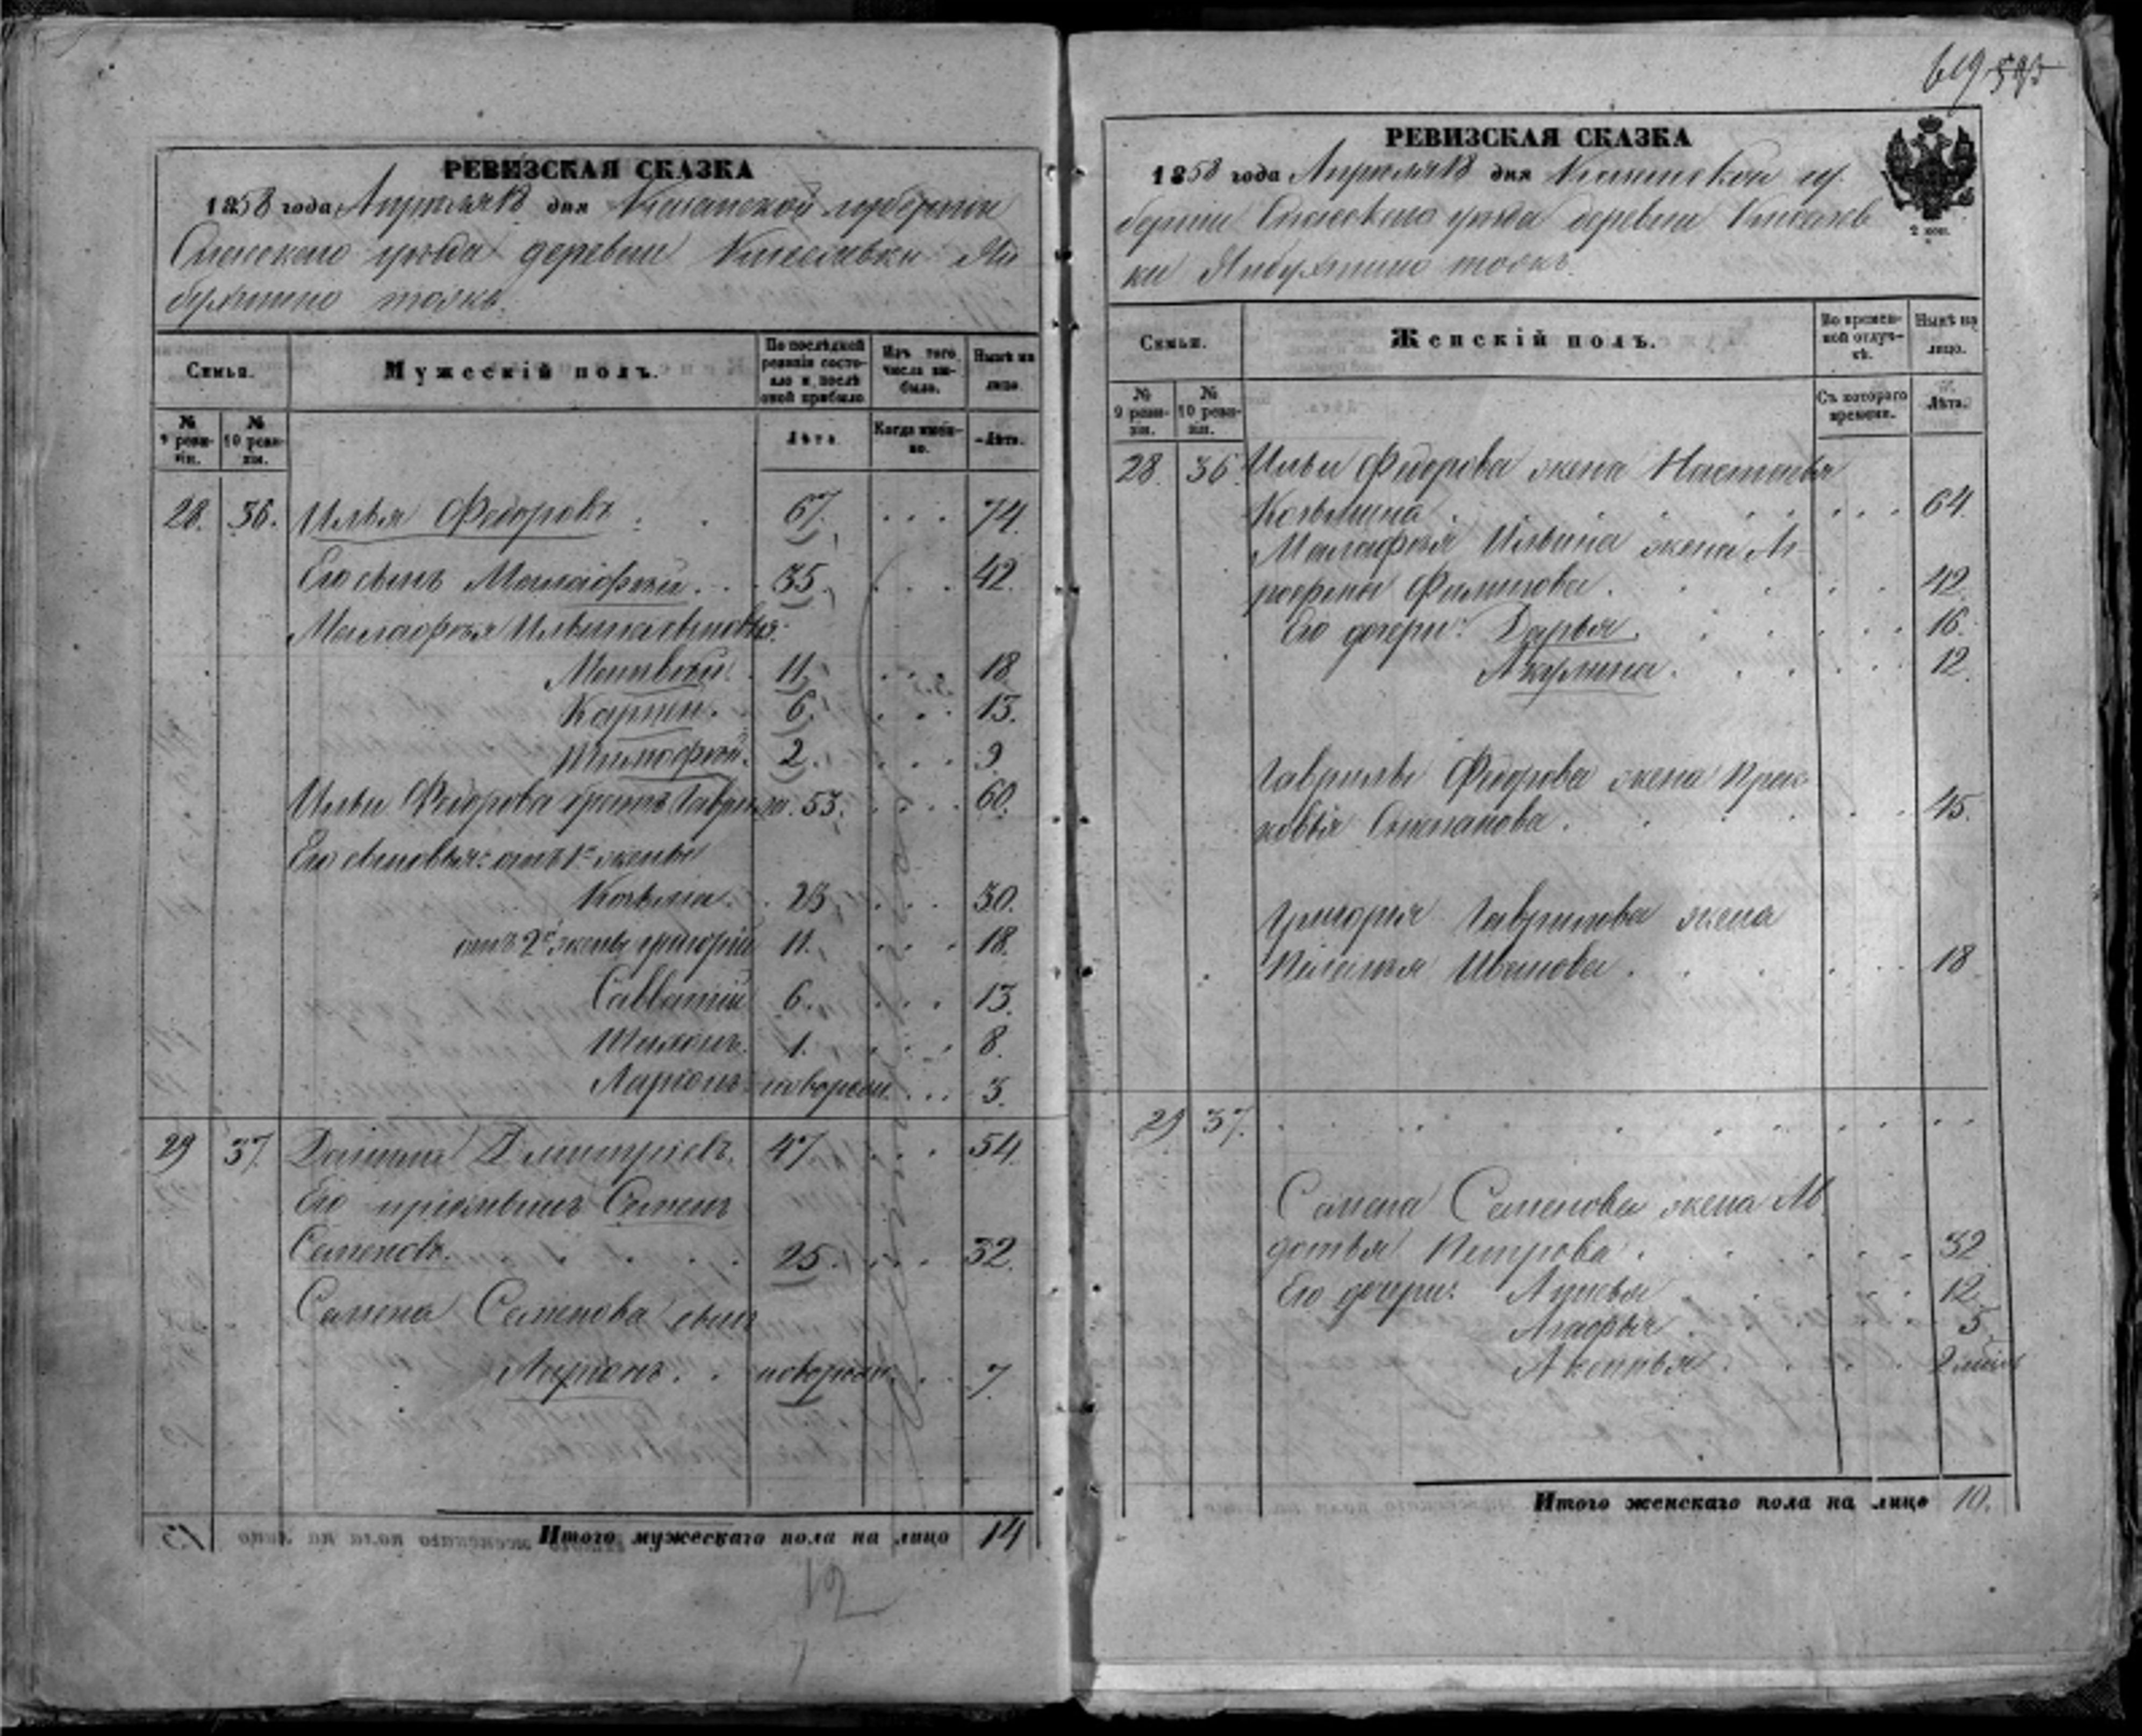 РЕВИЗСКАЯ СКАЗКА
1858 года Апреля 18 дня Казанской губернии
Спасскаго уѣзда деревни Киселевки
тожъ.
Семьи.
Мужескій полъ.
По послѣдней ревизіи состояло и послѣ оной прибыло
Изъ того числа выбыло.
Нынѣ на лицо
№ 9 ревизіи.
№ 10 ревизіи.
Лѣта
Когда именно.
Лѣта.
28. 36. Илья Федоровъ 67. 74.
Его сынъ Малафѣй. 35. 42.
Малафѣя Ильина сыновья:
Матвѣй. 11. 18
Карпъ. 6. 13.
Тимофѣй. 2. 9
Ильи Федорова братъ Гаврила. 53. 60.
Его сыновья: отъ 1й жены
Козьма. 23. 30.
отъ 2й жены Григорій 11. 18.
Савватій 6. 13.
Тихонъ. 1. 8.
Ларіонъ новорожд. 3.
29 37. Данила Дмитріевъ. 47 54.
Его пріемышъ Семенъ
Семеновъ. 25. 32.
Семена Семенова сынъ
новорожд. 7.
Итого мужескаго пола на лицо 14
12
619 595
РЕВИЗСКАЯ СКАЗКА
1858 года Апреля 18 дня Казанской гу
берніи Спасскаго уѣзда деревни Киселев
ки тожъ.
2 коп.
Семьи.
Женскій полъ.
Во временной отлучкѣ.
Нынѣ на лицо.
№ 9 ревизіи.
№ 10 ревизіи.
Съ котораго времени.
Лѣта.
28. 36 Ильи Федорова жена Настасья
Козьмина 64.
Малафѣя Ильина жена А
графена Филипова. 42.
Его дочери: Дарья. 16.
Акулина. 12.
Гаврилы Федорова жена Прас
ковья Степанова. 45.
Григорья Гаврилова жена
Пелагья Иванова. 18
29 37.
Семена Семенова жена Ав
дотья Петрова. 32
Его дочери: 12
Агафья 5
Аксинья.
Итого женскаго пола на лицо 10.